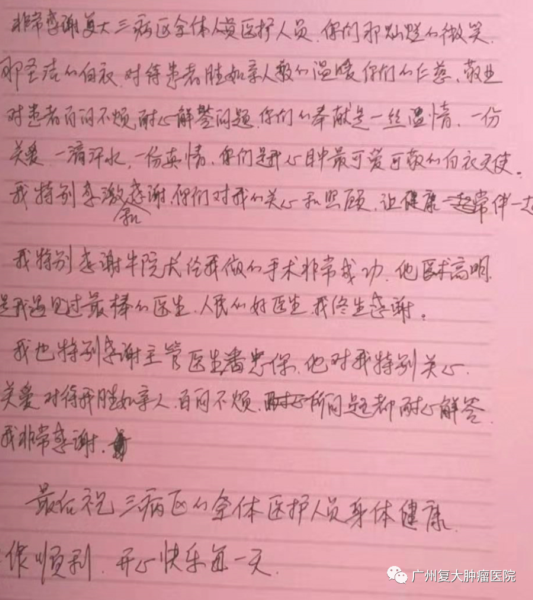 非常感谢复大三病区全体人员医护人员.你们那灿烂的微笑.
那圣洁的白衣.对待患者胜如亲人般的温暖你们的仁慈.敬业
对患者百问不烦,耐心解答问题.你们的奉献是一丝温情.一份
关爱一滴汗水,一份真情.你们是我心目中最可爱可敬的白衣天使。
我特别感激和感谢.你们对我的关心和照顾.让健康一起常伴一边
我特别感谢牛院长给我做的手术非常成功.他医术高明
是我遇见过最棒的医生.人民的好医生.我终生感谢。
我也特别感谢主管医生潘忠保.他对我特别关心.
关爱对待我胜如亲人.百问不烦.所问题都耐心解答.
我非常感谢.
最后祝三病区的全体医护人员身体健康.
作顺利.开心快乐每一天.
广州复大肿瘤医院